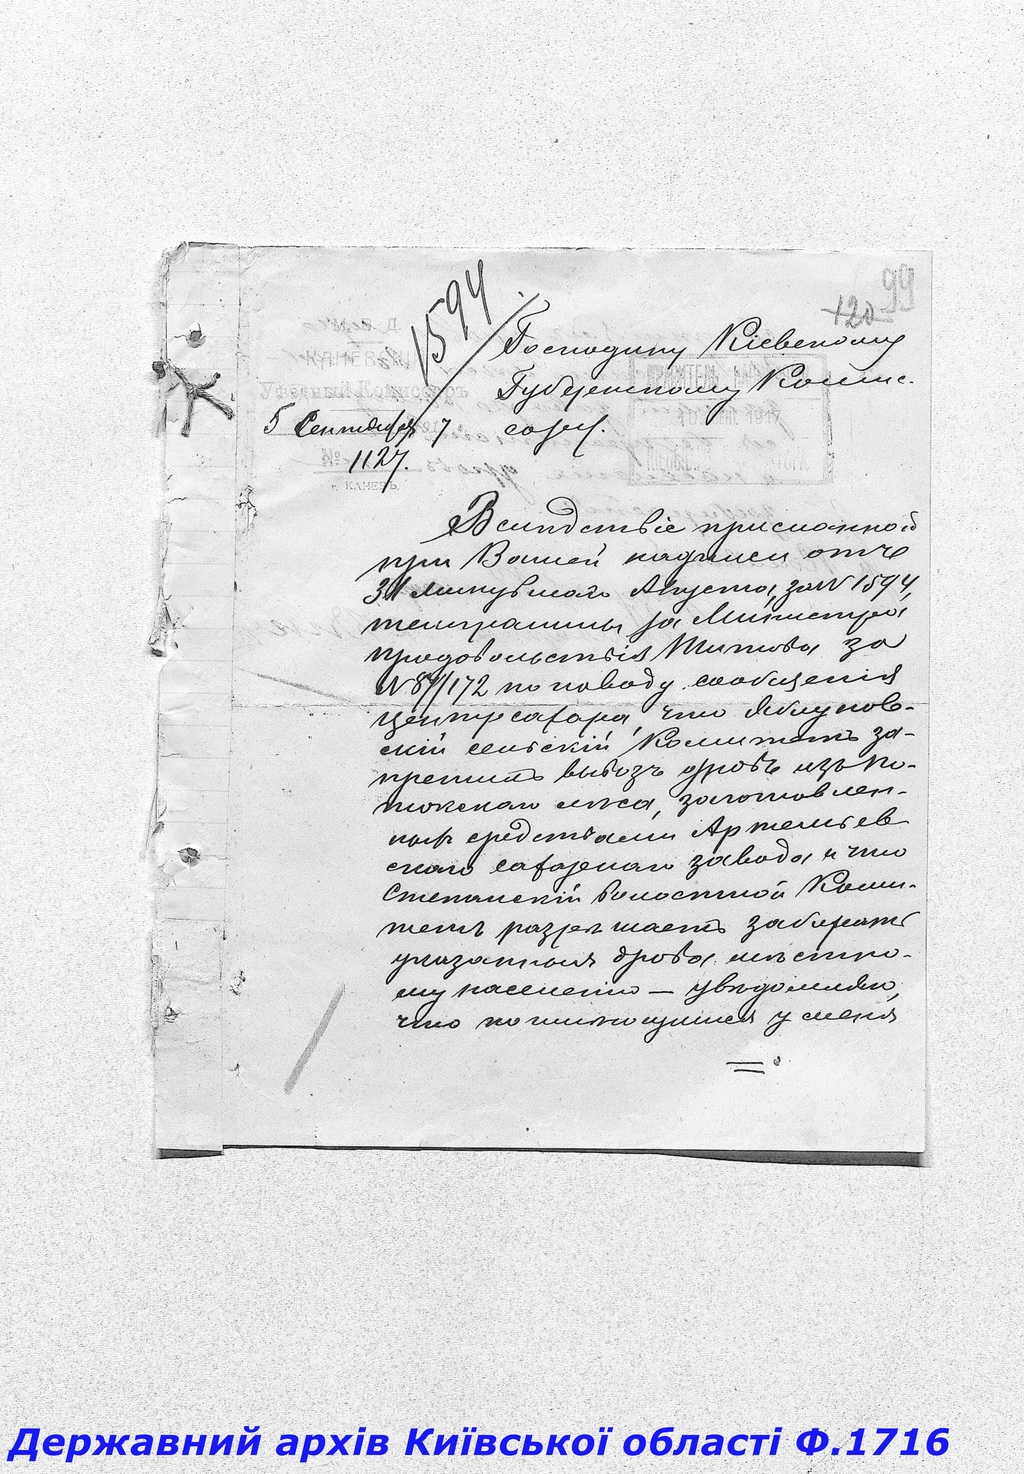 99
120
1594
Господину Кіевскому
Губернскому Комис-
сару.
Д.
КАНЕВСКІЙ
Уѣздный Комиссаръ
5 Сентября 7
№ 1127.
г. КАНЕВЪ.
Вслѣдствіе присланной
при Вашей надписи отъ
31 минувшаго Августа, за № 1594,
телеграммы за Министра
продовольствія Титова за
№ 87/172 по поводу сообщенія
Центросахара, что Яблунов-
скій сельскій Комитетъ за-
претилъ вывозъ дровъ изъ По-
токскаго лѣса, заготовлен-
ныхъ средствами Артемьев
скаго сахарнаго завода и что
Степанскій Волостной Коми-
тетъ разрѣшаетъ забирать
указанныя дрова мѣстно-
му населенію — увѣдомляю,
что по имѣющимся у меня
Державний архів Київської області Ф.1716